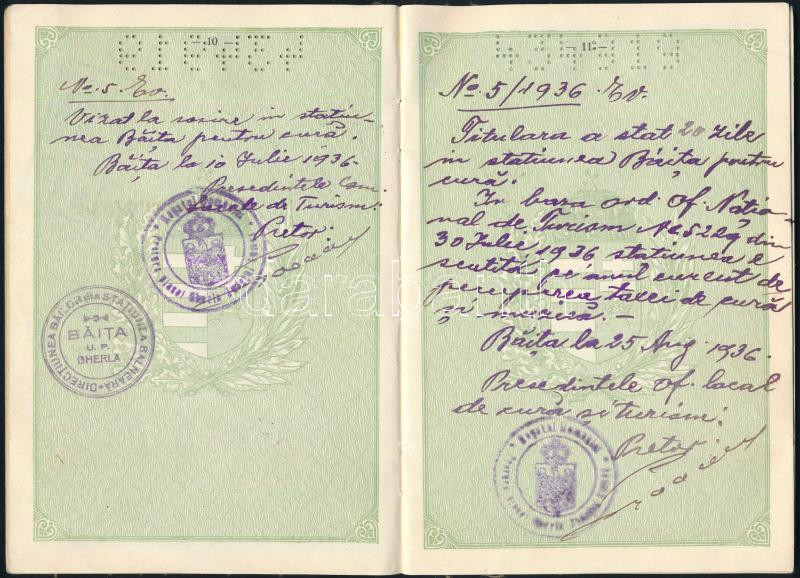 — 10 —
No. 5. Ev.
Vizat la sosire in statiu-
nea Băita pentru cură.
Băita la 10 Iulie 1936
Presedintele Com.
de Turism:
Pretor.
DIRECȚIUNEA BĂILOR din STATIUNEA BALNEARĂ
BĂITA
U. P.
GHERLA
— 11 —
No. 5/1936 Ev.
Titulara a stat 20 zile
in statiunea Băița pentru
cură.
In baza ord. Of. Națio-
nal de Turism No 5229 din
30 Iulie 1936 statiunea e
scutită pe anul curent de
perceperea taxei de cură
și muzică. —
Băița la 25 Aug. 1936.
Presedintele Of. local
de cură și turism:
Pretor:
Regatul României
darabanth